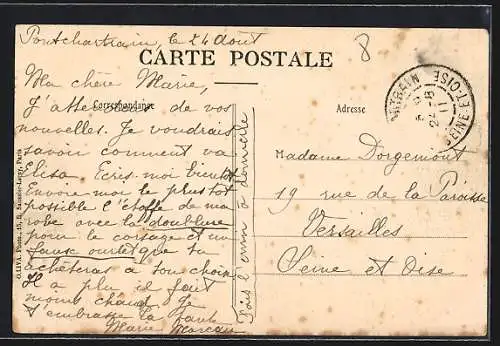 Pontchartrain, le 24 août
8
CARTE POSTALE
Correspondance
Adresse
Ma chère Marie,
J'attends de vos
nouvelles. Je voudrais
savoir comment va
Elisa. Ecris moi bientôt
Envoie moi le plus tôt
possible l'étoffe de ma
robe avec la doublure
pour le corsage et un
que tu
achèteras à ton choix
Il a plu il fait
moins chaud. Je
t'embrasse la
Marie
à domicile
Madame Dorgemont
19 rue de la Paroisse
Versailles
Seine et Oise
SEINE-ET-OISE
11